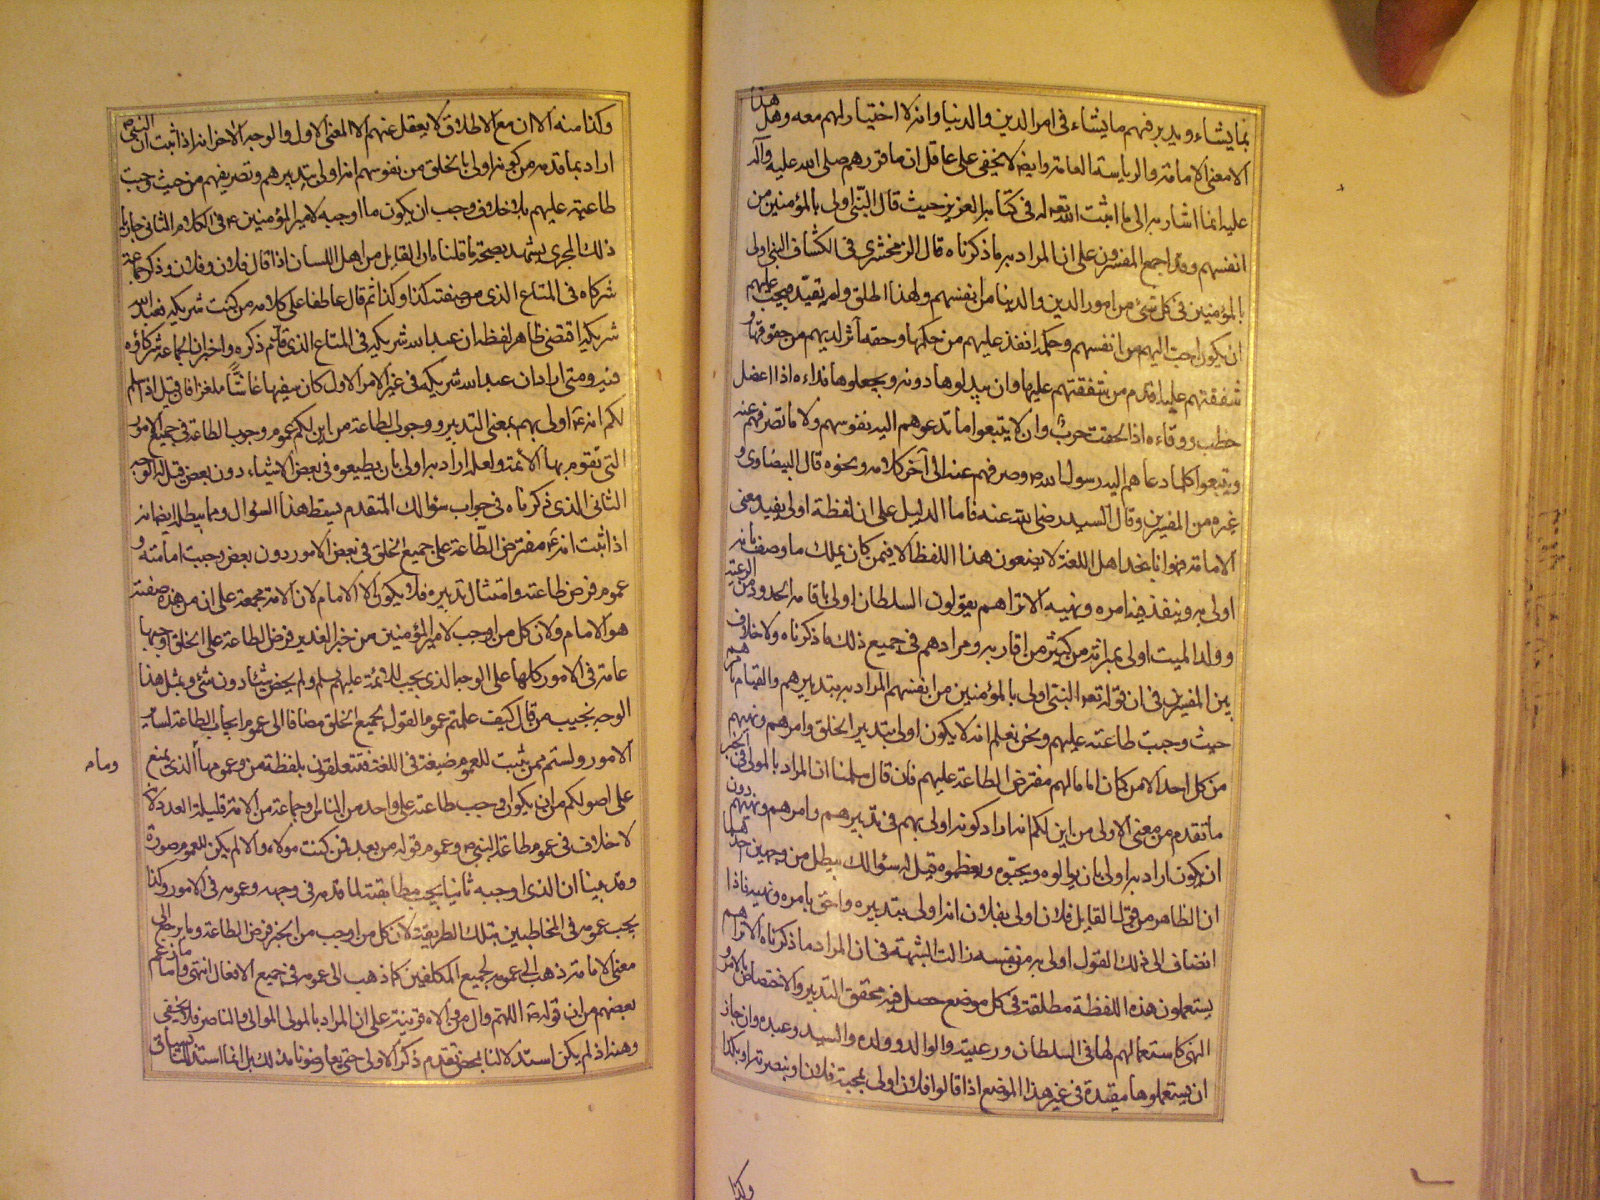 بما يشاء ويدبر فيهم ما يشاء في امر الدين والدنيا وانه لا اختيار لهم معه وهل هذا
الا معنى الامامة والرياسة العامة وايضا لا يخفى على عاقل ان ما قررهم صلى الله عليه وآله
عليه انما اشار به الى ما اثبت الله تع له في كتابه العزيز حيث قال النبي اولى بالمؤمنين من
انفسهم وقد اجمع المفسرون على ان المراد به ما ذكرناه قال الزمخشري في الكشاف النبي اولى
بالمؤمنين في كل شيء من امور الدين والدنيا من انفسهم ولهذا اطلق ولم يقيد فيجب عليهم
ان يكون احب اليهم من انفسهم وحكمه انفذ عليهم من حكمها وحقه آثر لديهم من حقوقها و
شفقتهم عليه اقدم من شفقتهم عليها وان يبدلوها دونه ويجعلوها فداءه اذا اعضل
خطب ووقاءه اذا لحقت حرب وان لا يتبعوا ما تدعوهم اليه نفوسهم ولا ما تصرفهم عنه
ويتبعوا كلما دعاهم اليه رسول الله ص وصرفهم عنه الى آخر كلامه ونحوه قال البيضاوي و
غيره من المفسرين وقال السيد رضي الله عنه فاما الدليل على ان لفظة اولى يفيد معنى
الامامة فهو انا نجد اهل اللغة لا يضعون هذا اللفظ الا فيمن كان يملك ما وصف بانه
اولى به وينفذ فيه امره ونهيه الا تراهم يقولون السلطان اولى باقامة الحدود من الرعية
وولد الميت اولى بميراثه من كثير من اقاربه ومرادهم في جميع ذلك ما ذكرناه ولا خلاف
بين المفسرين في ان قوله تع النبي اولى بالمؤمنين من انفسهم المراد به بتدبيرهم والقيام بامرهم
حيث وجبت طاعته عليهم ونحن نعلم انه لا يكون اولى بتدبير الخلق وامرهم ونهيهم
من كل احد الا من كان اماما لهم مفترض الطاعة عليهم فان قال سلمنا ان المراد بالمولى في الخبر
ما تقدم من معنى الاولى من اين لكم انه اراد كونه اولى بهم في تدبيرهم وامرهم ونهيهم دون
ان يكون اراد به اولى بان يوالوه ويحبوه ويعظموه قيل له سؤالك يبطل من وجهين احدهما
ان الظاهر من قول القايل فلان اولى بفلان انه اولى بتدبيره واحق بامره ونهيه فاذا
انضاف الى ذلك القول اولى به من نفسه زالت الشبهة في ان المراد ما ذكرناه الا تراهم
يستعملون هذه اللفظة مطلقة في كل موضع حصل فيه محقق التدبير والاختصاص بالامر و
النهي كاستعمالهم لها في السلطان ورعيته والوالد وولده والسيد وعبده وان جاز
ان يستعملوها مقيدة في غير هذا الموضع اذا قالوا فلان اولى بمحبة فلان او بنصرته او بكذا
وكذا
وكذا منه الا ان مع الاطلاق لا يعقل عنهم الا المعنى الاول والوجه الآخر انه اذا ثبت ان النبي ص
اراد بما قدمه من كونه اولى بالخلق من نفوسهم انه اولى بتدبيرهم وتصريفهم من حيث وجبت
طاعته عليهم بلا خلاف وجب ان يكون ما اوجبه لامير المؤمنين ع في الكلام الثاني جاريا
ذلك المجرى يشهد بصحة ما قلناه ان القايل من اهل اللسان اذا قال فلان وفلان وذكر جماعة
شركاه في المتاع الذي من صفته كذا وكذا ثم قال عاطفا على كلامه من كنت شريكه فعبد الله
شريكه اقتضى ظاهر لفظه ان عبد الله شريكه في المتاع الذي قدم ذكره واخبر ان الجماعة شركاؤه
فيه ومتى اراد ان عبد الله شريكه في غير الامر الاول كان سفيها غاشا ملغزا فان قيل اذا سلم
لكم انه ع اولى بهم بمعنى التدبير ووجوب الطاعة من اين لكم عموم وجوب الطاعة في جميع الامور
التي تقوم بها الائمة ولعله اراد به اولى بان يطيعوه في بعض الاشياء دون بعض قيل له الوجه
الثاني الذي ذكرناه في جواب سؤالك المتقدم يسقط هذا السؤال ومما يبطله ايضا انه
اذا ثبت انه ع مفترض الطاعة على جميع الخلق في بعض الامور دون بعض وجبت امامته و
عموم فرض طاعته وامتثال تدبيره فلا يكون الا الامام لان الامة مجمعة على ان من هذه صفته
هو الامام ولان كل من اوجب لامير المؤمنين من خبر الغدير فرض الطاعة على الخلق اوجبها
عامة في الامور كلها على الوجه الذي يجب للائمة عليهم السلم ولم يخص شيئا دون شيء وبمثل هذا
الوجه نجيب من قال كيف علمتم عموم القول لجميع الخلق مضافا الى عموم ايجاب الطاعة لساير
الامور ولستم ممن يثبت للعموم صيغة في اللغة فتتعلقون بلفظة من وعمومها وما الذي يمنع
ومام
على اصولكم من ان يكون اوجب طاعة على واحد من الناس او جماعة من الامة قليلة العدد لانه
لا خلاف في عموم طاعة النبي ص وعموم قوله من بعد فمن كنت مولاه والا لم يكن للعموم صورة
وقد بينا ان الذي اوجبه ثانيا يجب مطابقته لما قدمه في وجهه وعمومه في الامور وكذا
يجب عمومه في المخاطبين بتلك الطريقة لان كل من اوجب من الخبر فرض الطاعة وما يرجع الى
معنى الامامة ذهب الى عمومه لجميع المكلفين كما ذهب الى عمومه في جميع الافعال انتهى واما ما زعم
بعضهم من ان قوله ص اللهم وال من والاه قرينة على ان المراد بالمولى الموالي والناصر فلا يخفى
وهنه اذ لم يكن استدلالنا بمحض تقدم ذكر الاولى حتى يعارضونا بذلك بل انما استدللنا بسياق